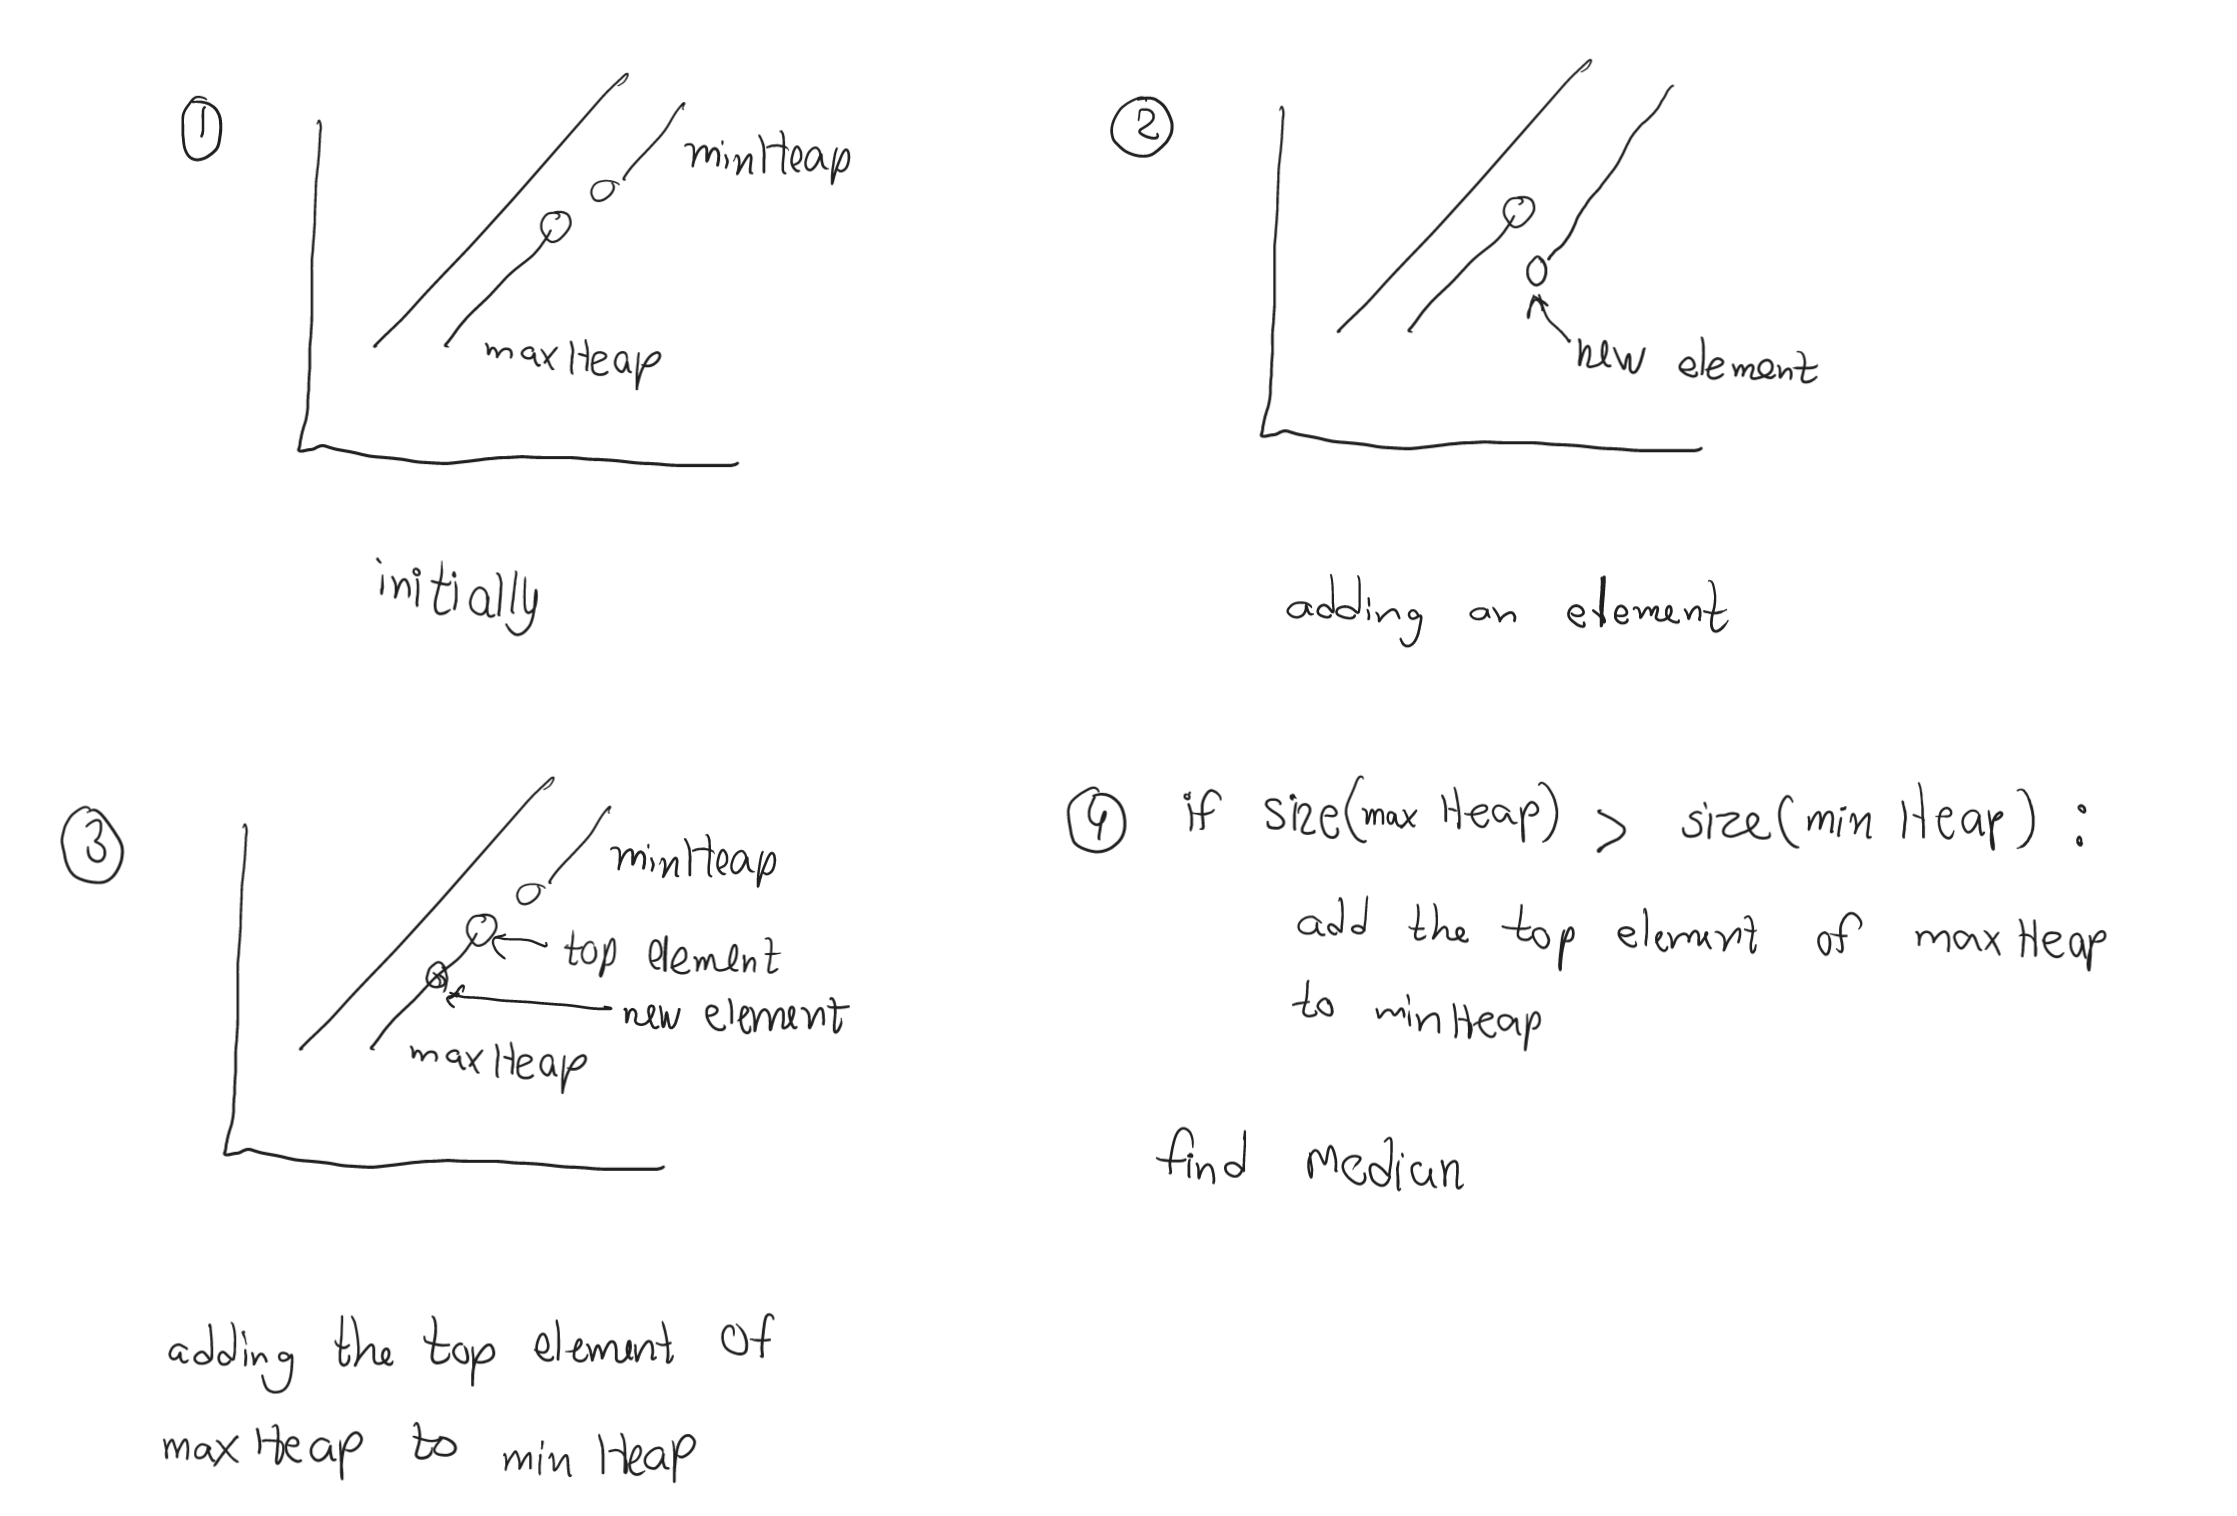 1
minHeap
maxHeap
initially
2
new element
adding an element
3
minHeap
top element
new element
maxHeap
adding the top element of
maxHeap to minHeap
4 if size(maxHeap) > size(minHeap) :
add the top element of maxHeap
to minHeap
find median